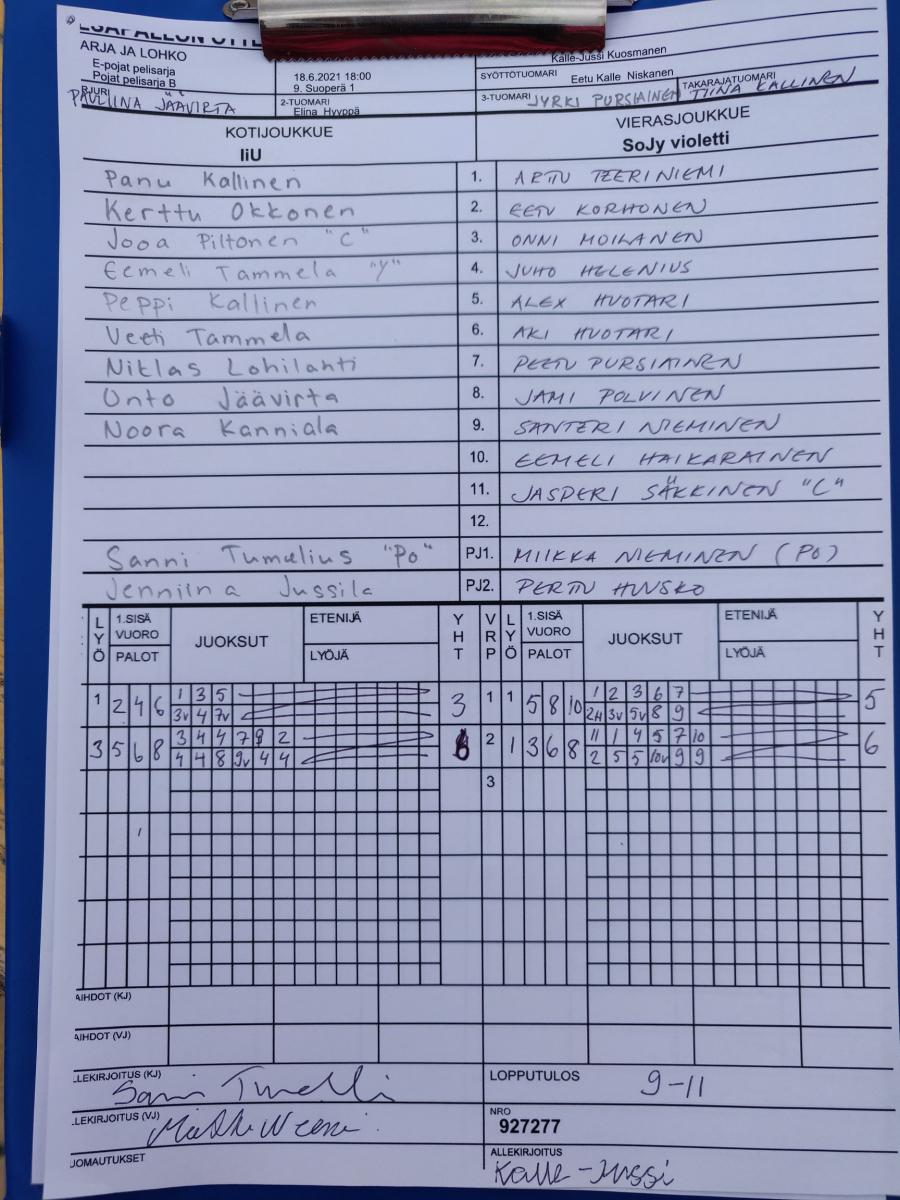 ARJA JA LOHKO
E-pojat pelisarja
Pojat pelisarja B
18.6.2021 18:00
9. Suoperä 1
Kalle-Jussi Kuosmanen
SYÖTTÖTUOMARI Eetu Kalle Niskanen
PAULIINA JÄÄVIRTA
2-TUOMARI
Elina Hyyppä
3-TUOMARI JYRKI PURSIAINEN
TAKARAJATUOMARI
TIINA KALLINEN
KOTIJOUKKUE
IiU
VIERASJOUKKUE
SoJy violetti
Panu Kallinen 1. ARTTU TEERINIEMI
Kerttu Okkonen 2. EETU KORHONEN
Jooa Piltonen "C" 3. ONNI MOILANEN
Eemeli Tammela "Y" 4. JUHO HELENIUS
Peppi Kallinen 5. ALEX HUOTARI
Veeti Tammela 6. AKI HUOTARI
Niklas Lohilahti 7. PEETU PURSIAINEN
Unto Jäävirta 8. JAMI POLVINEN
Noora Kanniala 9. SANTERI NIEMINEN
10. EEMELI HAIKARAINEN
11. JASPERI SÄKKINEN "C"
12.
Sanni Tumelius "Po" PJ1. MIIKKA NIEMINEN (PO)
Jenniina Jussila PJ2. PERTTU HUUSKO
LYÖ 1.SISÄ VUORO PALOT JUOKSUT ETENIJÄ LYÖJÄ YHT VRP LYÖ 1.SISÄ VUORO PALOT JUOKSUT ETENIJÄ LYÖJÄ YHT
1 2 4 6 1 3 5 3 1 1 5 8 10 1 2 3 6 7 5
3v 4 7v 2H 3v 5v 8 9
3 5 6 8 3 4 4 7 9 2 6 2 1 3 6 8 11 1 4 5 7 10 6
4 4 8 9v 4 4 2 5 5 10v 9 9
3
AIHDOT (KJ)
AIHDOT (VJ)
LLEKIRJOITUS (KJ)
LOPPUTULOS 9-11
LLEKIRJOITUS (VJ)
NRO
927277
UOMAUTUKSET
ALLEKIRJOITUS
Kalle-Jussi